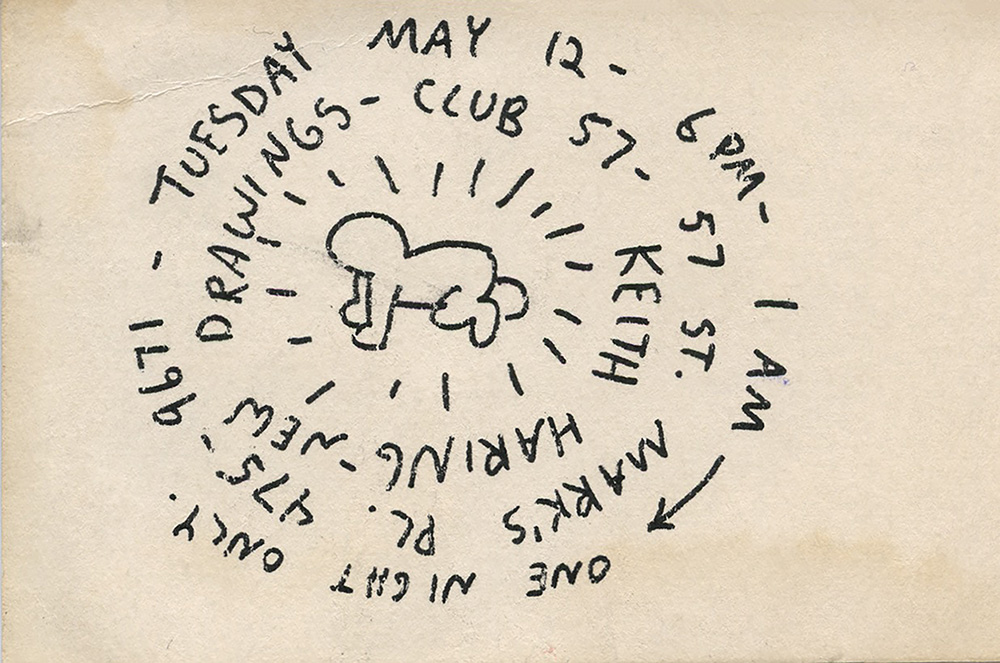 KEITH HARING - NEW DRAWINGS -
CLUB 57 - 57 ST. MARK'S PL. 475-9671 -
TUESDAY MAY 12 - 6PM - 1 AM
ONE NIGHT ONLY.